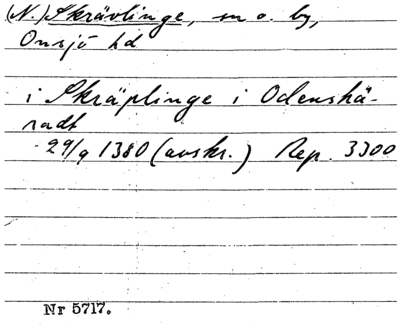 (N.) Skrävlinge, sn o. by,
Onsjö hd
i Skräplinge i Odenshä-
radt
29/9 1380 (avskr.) Rep. 3300
Nr 5717.